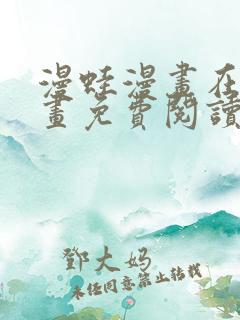 漫蛙漫畫在
畫免費閱讀
鄧大妈
未经同意禁止转载